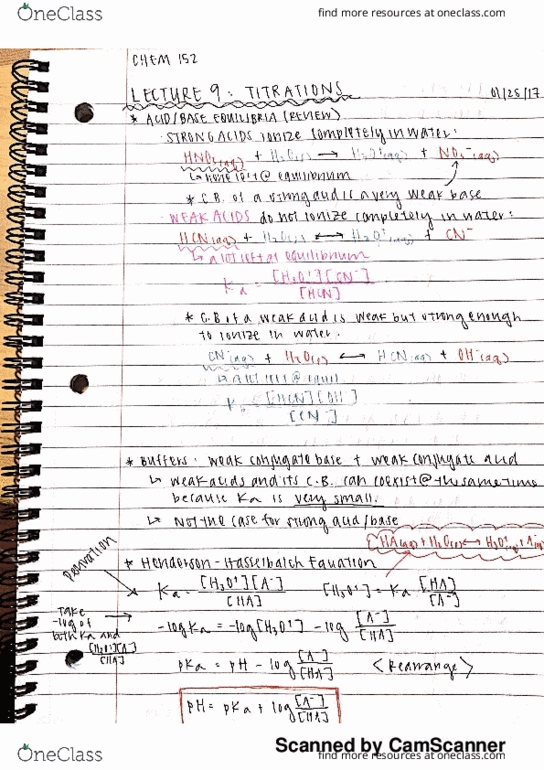 OneClass
find more resources at oneclass.com
CHEM 152
LECTURE 9: TITRATIONS 01/25/17
* ACID/BASE EQUILIBRIA (REVIEW)
STRONG ACIDS ionize completely in water:
HNO₃(aq) + H₂O(l) → H₃O⁺(aq) + NO₃⁻(aq)
↳ none left @ equilibrium
* C.B. of a strong acid is a very weak base
WEAK ACIDS do not ionize completely in water:
HCN(aq) + H₂O(l) ⟷ H₃O⁺(aq) + CN⁻
↳ a lot left at equilibrium
Ka = [H₃O⁺][CN⁻] / [HCN]
* C.B. of a weak acid is weak but strong enough
to ionize in water.
CN⁻(aq) + H₂O(l) ⟷ HCN(aq) + OH⁻(aq)
↳ a lot left @ equil
[HCN][OH⁻] / [CN⁻]
* Buffers: weak conjugate base + weak conjugate acid
↳ weak acids and its C.B. can coexist @ the same time
because Ka is very small.
↳ Not the case for strong acid/base
HA(aq) + H₂O(l) ⟷ H₃O⁺(aq) + A⁻(aq)
* Henderson-Hasselbalch Equation
Derivation
Ka = [H₃O⁺][A⁻] / [HA] [H₃O⁺] = Ka [HA] / [A⁻]
Take
-log of
both Ka and
[H₃O⁺][A⁻] / [HA]
-log Ka = -log[H₃O⁺] - log [A⁻] / [HA]
pKa = pH - log [A⁻] / [HA] <Rearrange>
pH = pKa + log [A⁻] / [HA]
Scanned by CamScanner
OneClass
find more resources at oneclass.com